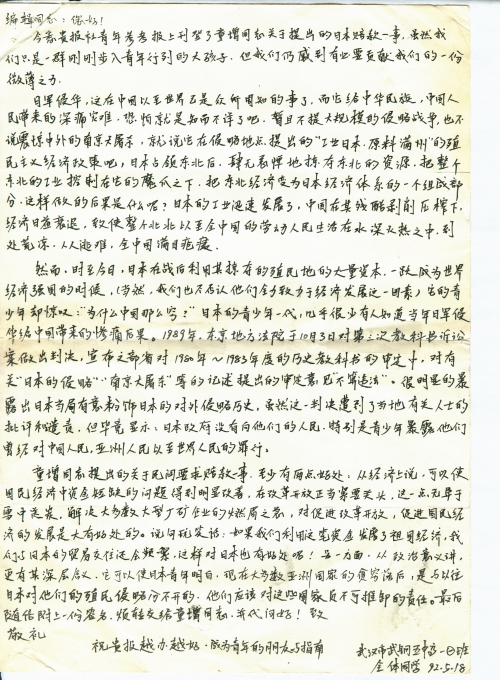 编辑同志：您好！
今读贵报社青年参考报上刊登了童增同志关于提出的日本赔款一事，虽然我
们只是一群刚刚步入青年行列的大孩子，但我们仍感到有必要贡献我们的一份
微薄之力。
日军侵华，这在中国以至世界已是众所周知的事了，而它给中华民族，中国人
民带来的深痛灾难，恐怕就是知而不详了吧，暂且不提大规模的侵略战争，也不
说震惊中外的南京大屠杀，就说它在侵略地点提出的“工业日本，原料满州”的殖
民主义经济政策吧，日本占领东北后，肆无忌惮地掠夺东北的资源，把整个
东北的工业控制在它的魔爪之下，把东北经济变为日本经济体系的一个组成部
分，这样做的后果是什么呢？日本的工业迅速发展了，中国在其残酷剥削压榨下，
经济日益衰退，致使整个东北以至全中国的劳动人民生活在水深火热之中，到
处荒凉，人人逃难，全中国满目疮痍。
然而，时至今日，日本在战后利用其掠夺的殖民地的大量资本，一跃成为世界
经济强国的时候，（当然，我们也不否认他们全力致力于经济发展这一因素）它的青
少年却惊叹：“为什么中国那么穷？”日本的青少年一代，几乎很少有人知道当年日军侵
华给中国带来的惨痛后果。1989年，东京地方法院于10月3日对第三次教科书诉讼
案做出判决，宣布文部省对1980年～1983年度的历史教科书的审定中，对有
关“日本的侵略”“南京大屠杀”等的记述提出的审定意见“不算违法”。很明显的暴
露出日本当局有意粉饰日本的对外侵略历史，虽然这一判决遭到了当地有关人士的
批评和谴责，但毕竟显示：日本政府没有向他们的人民，特别是青少年暴露他们
曾经对中国人民，亚洲人民以至世界人民的罪行。
童增同志提出的关于民间要求赔款一事，至少有两点好处：从经济上说，可以使
国民经济中资金短缺的问题得到明显改善，在改革开放正当需要关头，这一点犹等于
雪中送炭，解决大多数大型厂矿企业的燃眉之急，对促进改革开放，促进国民经
济的发展是大有好处的。说句玩笑话：如果我们利用这笔资金发展了祖国经济，我
们与日本的贸易交往还会频繁，这样对日本也有好处呢！另一方面，从政治意义讲，
更有其深层含义，它可以使日本青年明白，现在大多数亚洲国家的贫穷落后，是与以往
日本对他们的殖民侵略分不开的，他们应该对这些国家负不可推卸的责任。最后
随信附上一份签名，烦转交给童增同志，并代问好！致
敬礼
祝贵报越办越好，成为青年的朋友与指南
武汉市武钢五中高一〇班
全体同学 92.5.18